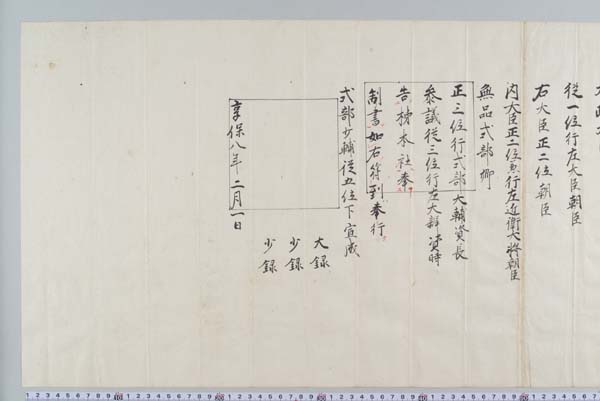 従一位行左大臣朝臣
右大臣正二位朝臣
内大臣正二位兼行左近衛大将朝臣
無品式部卿
正三位行式部大輔資長
参議従三位行左大辨資時
告柿本社奉
制書如右符到奉行
式部少輔従五位下宣成
大録
少録
少録
享保八年二月一日